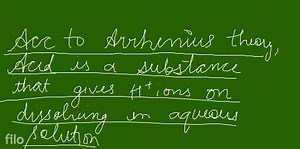 Acc to Arrhenius theory,
Acid is a substance
that gives H⁺ ions on
dissolving in aqueous
solution
filo